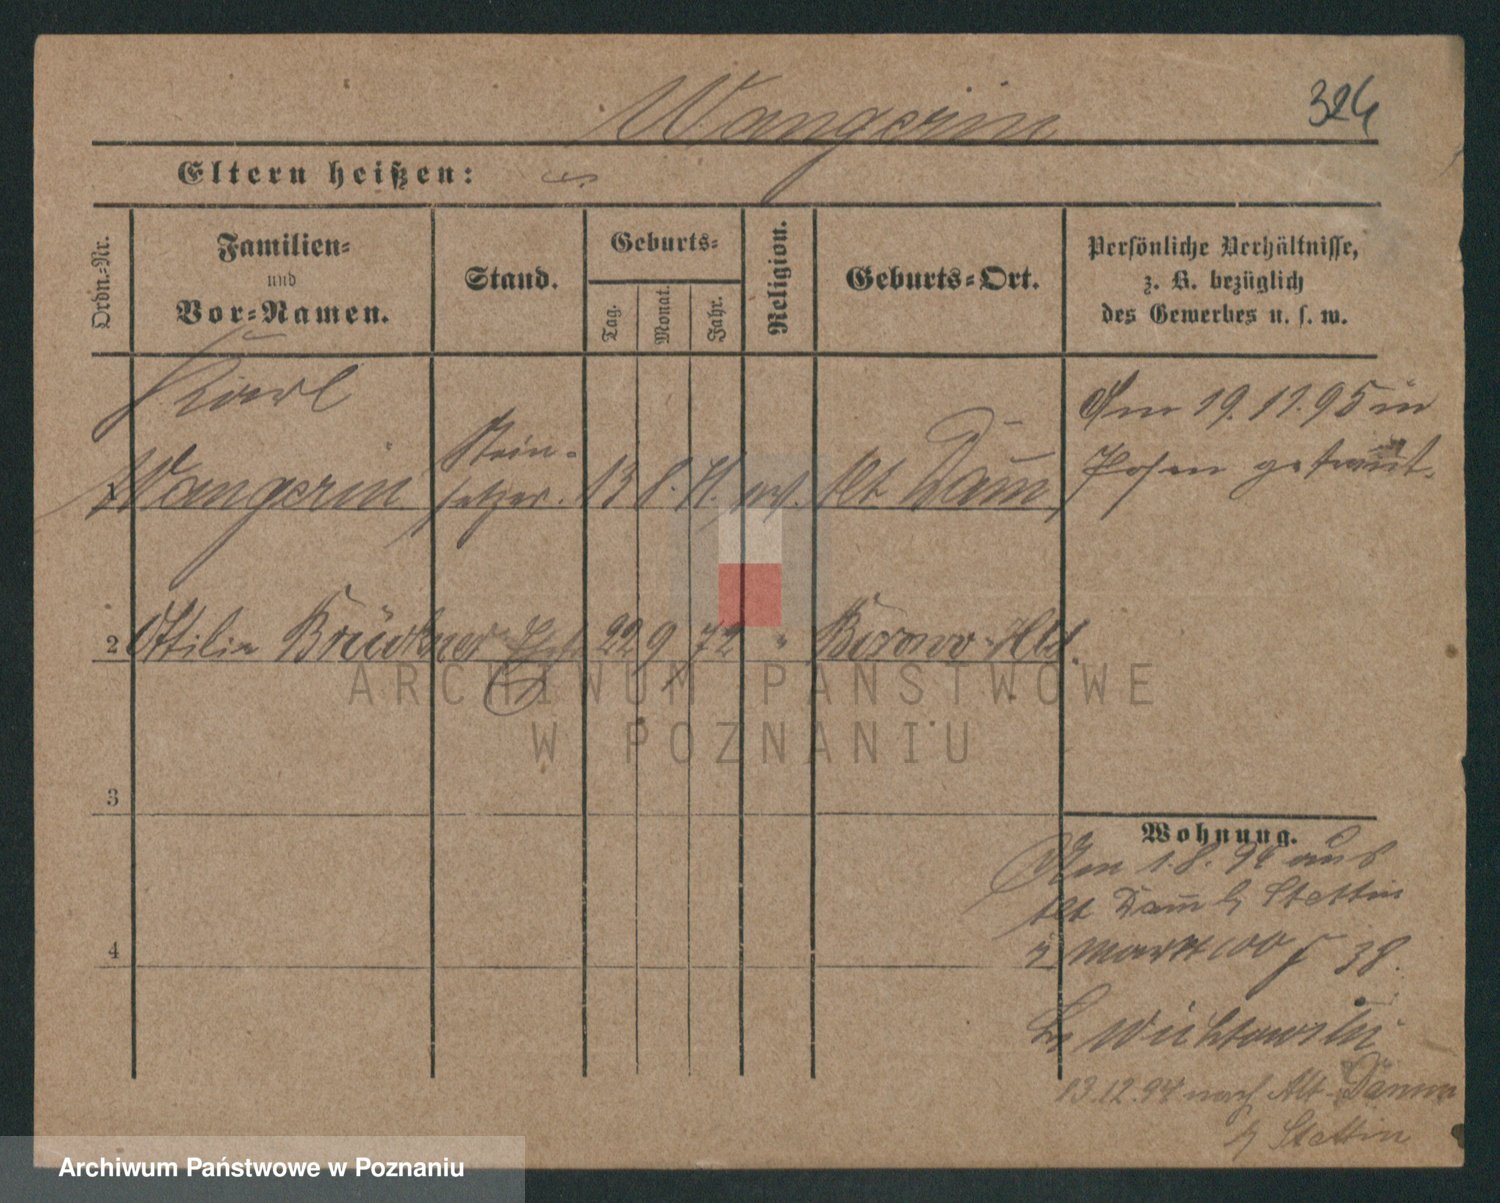 Wangerin 326
Eltern heißen:
Ordn.-Nr.
Familien-
und
Vor-Namen.
Stand.
Geburts-
Tag.
Monat.
Jahr.
Religion.
Geburts-Ort.
Persönliche Verhältnisse,
z. B. bezüglich
des Gewerbes u. s. w.
Karl
1 Wangerin
Stein-
setzer. 13 8. 71. ev. Alt Dam̄
Am 19.11.95 in
Posen getraut.
2 Ottilie Brückner 22 9 72 " Borowo Hld.
ARCHIWUM PAŃSTWOWE
W POZNANIU
3
Wohnung.
Am 1.8.94 aus
Alt Dam̄ b/ Stettin
Markt 100 38.
4
Wichtowski
13.12.94 nach Alt-Damm
b/ Stettin
Archiwum Państwowe w Poznaniu